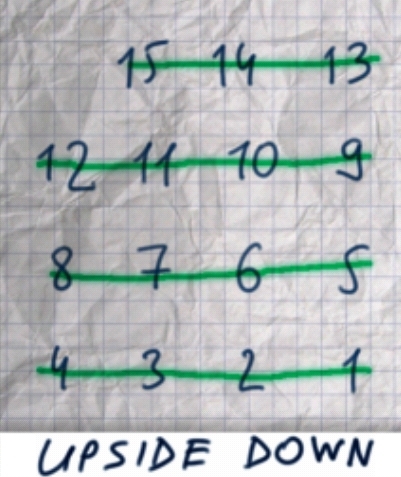 15 14 13
12 11 10 9
8 7 6 5
4 3 2 1
UPSIDE DOWN